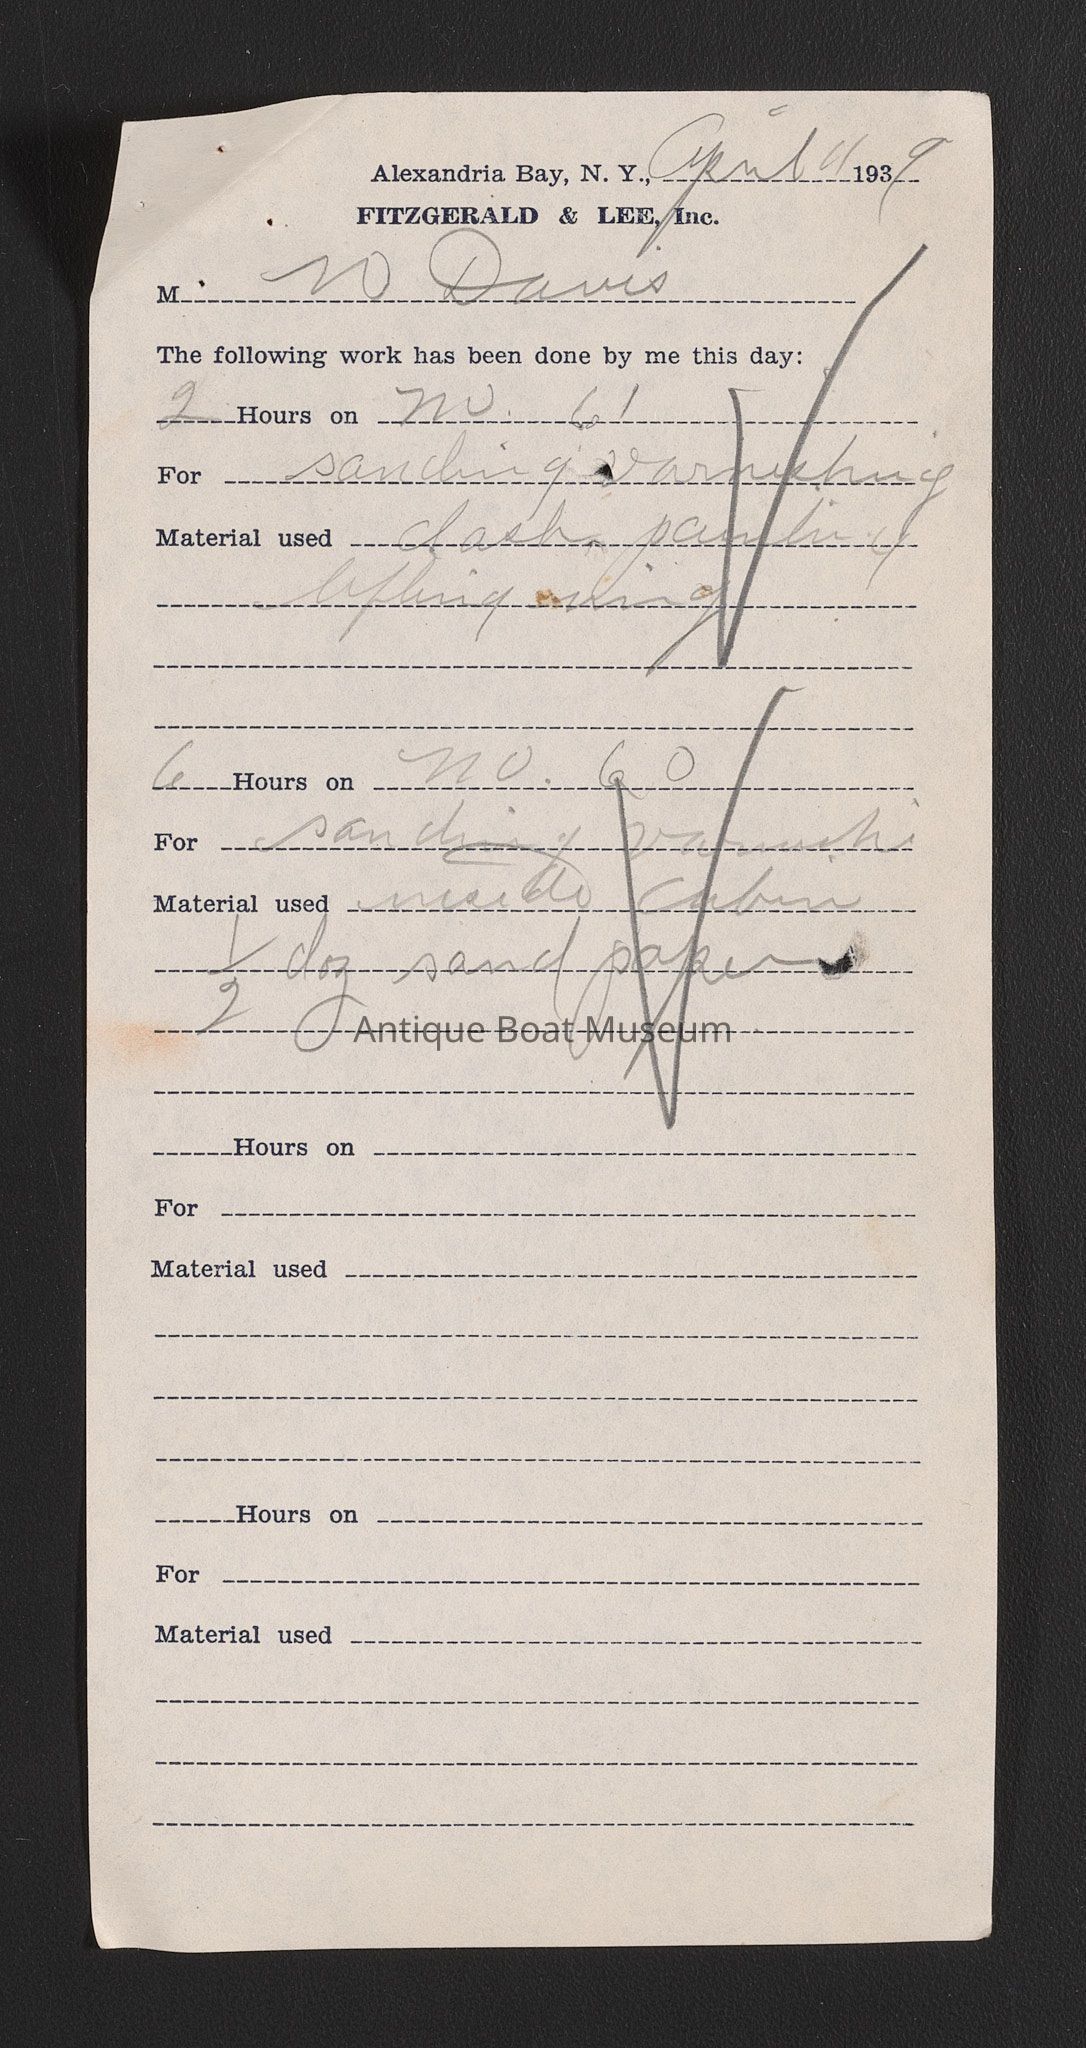 Alexandria Bay, N. Y., April 11 1939
FITZGERALD & LEE, Inc.
M W Davis
The following work has been done by me this day:
2 Hours on No. 61
For sanding varnishing
Material used dash, painting
lifting ring
6 Hours on No. 60
For sanding varnishi
Material used inside Cabin
1/2 doz sand paper
Antique Boat Museum
Hours on
For
Material used
Hours on
For
Material used